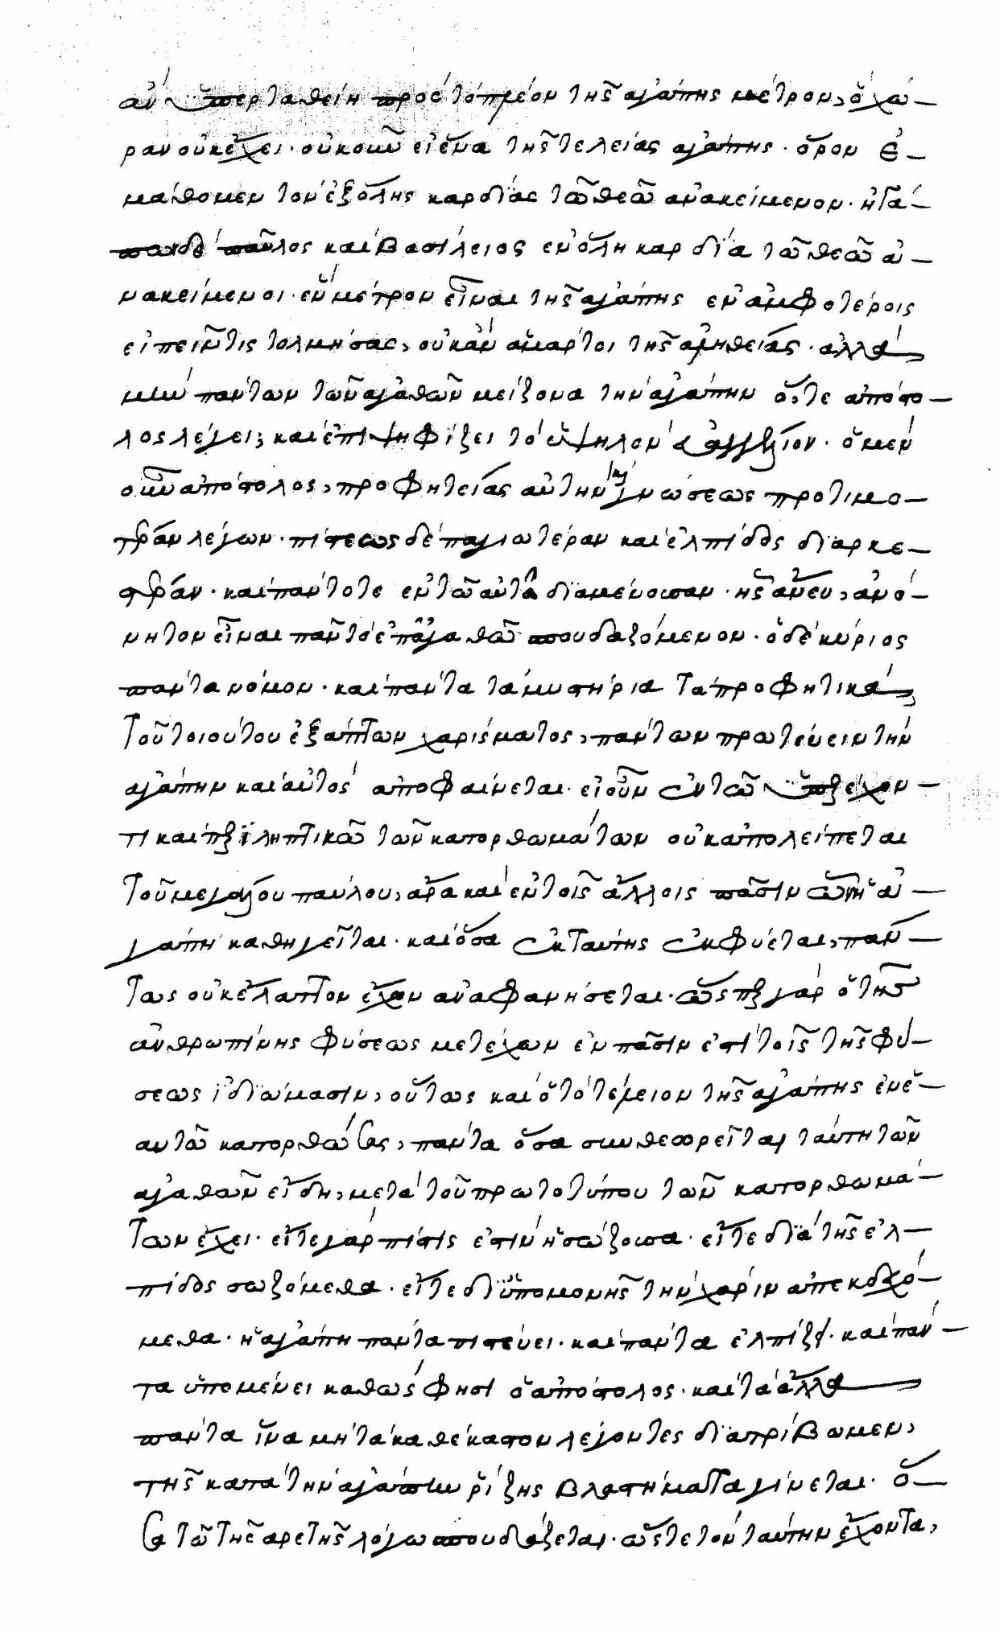 ἂν ὑπερταθείη πρὸς τὸ πλέον τῆς ἀγάπης μέτρον, ὃ χώ-
ραν οὐκ ἔχει· οὐκοῦν εἰ ἕνα τῆς τελείας ἀγάπης· ὅρον ἐ-
μάθομεν τὸν ἐξ ὅλης καρδίας τῶ θεῶ ἀνακείμενον· ἠγά-
παν δὲ παῦλος καὶ βασίλειος ἐν ὅλη καρδία τῶ θεῶ ἀ-
νακείμενοι· ἓν μέτρον εἶναι τῆς ἀγάπης ἐν ἀμφοτέροις
εἰπεῖν τις τολμήσας, οὐκ ἂν ἁμάρτοι τῆς ἀληθείας· ἀλλὰ
μὴν πάντων τῶν ἀγαθῶν μείζονα τὴν ἀγάπην ὅ, τε ἀπόστο-
λος λέγει, καὶ ἐπιψηφίζει τὸ ὑψηλὸν εὐαγγέλιον· ὁ μὲν
οὖν ἀπόστολος, προφητείας αὐτὴν καὶ γνώσεως προτιμο-
τέραν λέγων· πίστεως δὲ παγιωτέραν καὶ ἐλπίδος διαρκε-
στέραν· καὶ πάντοτε ἐν τῶ αὐτῶ διαμένουσαν· ἧς ἄνευ, ἀνό-
νητον εἶναι πᾶν τὸ ἐπ' ἀγαθῶ σπουδαζόμενον· ὁ δὲ κύριος
πάντα νόμον· καὶ πάντα τὰ μυστήρια τὰ προφητικὰ
τοῦ τοιούτου ἐξάπτων χαρίσματος, πάντων πρωτεύειν τὴν
ἀγάπην καὶ αὐτὸς ἀποφαίνεται· εἰ οὖν ἐν τῶ ὑπερέχον-
τι καὶ περιληπτικῶ τῶν κατορθωμάτων οὐκ ἀπολείπεται
τοῦ μεγάλου παύλου, ἄρα καὶ ἐν τοῖς ἄλλοις πᾶσιν ὧν ἡ ἀ-
γάπη καθηγεῖται· καὶ ὅσα ἐκ ταύτης ἐκφύεται, πάν-
τως οὐκ ἔλαττον ἔχων ἀναφανήσεται· ὥσπερ γὰρ ὁ τῆς
ἀνθρωπίνης φύσεως μετέχων ἐν πᾶσίν ἐστι τοῖς τῆς φύ-
σεως ἰδιώμασιν, οὕτως καὶ ὁ τὸ τέλειον τῆς ἀγάπης ἐν ἑ-
αυτῶ κατορθώσας, πάντα ὅσα συνθεωρεῖται ταύτη τῶν
ἀγαθῶν εἴδη, μετὰ τοῦ πρωτοτύπου τῶν κατορθωμά-
των ἔχει· εἴτε γὰρ πίστις ἐστὶν ἡ σώζουσα· εἴτε διὰ τῆς ἐλ-
πίδος σωζόμεθα· εἴτε δι' ὑπομονῆς τὴν χάριν ἀπεκδεχό-
μεθα· ἡ ἀγάπη πάντα πιστεύει· καὶ πάντα ἐλπίζει· καὶ πάν-
τα ὑπομένει καθώς φησι ὁ ἀπόστολος· καὶ τὰ ἄλλα
πάντα ἵνα μὴ τὰ καθέκαστον λέγοντες διατρίβωμεν,
τῆς κατὰ τὴν ἀγάπην ῥίζης βλαστήματα γίνεται· ὅ-
σα τῶ τῆς ἀρετῆς λόγω σπουδάζεται· ὥστε τὸν ταύτην ἔχοντα,